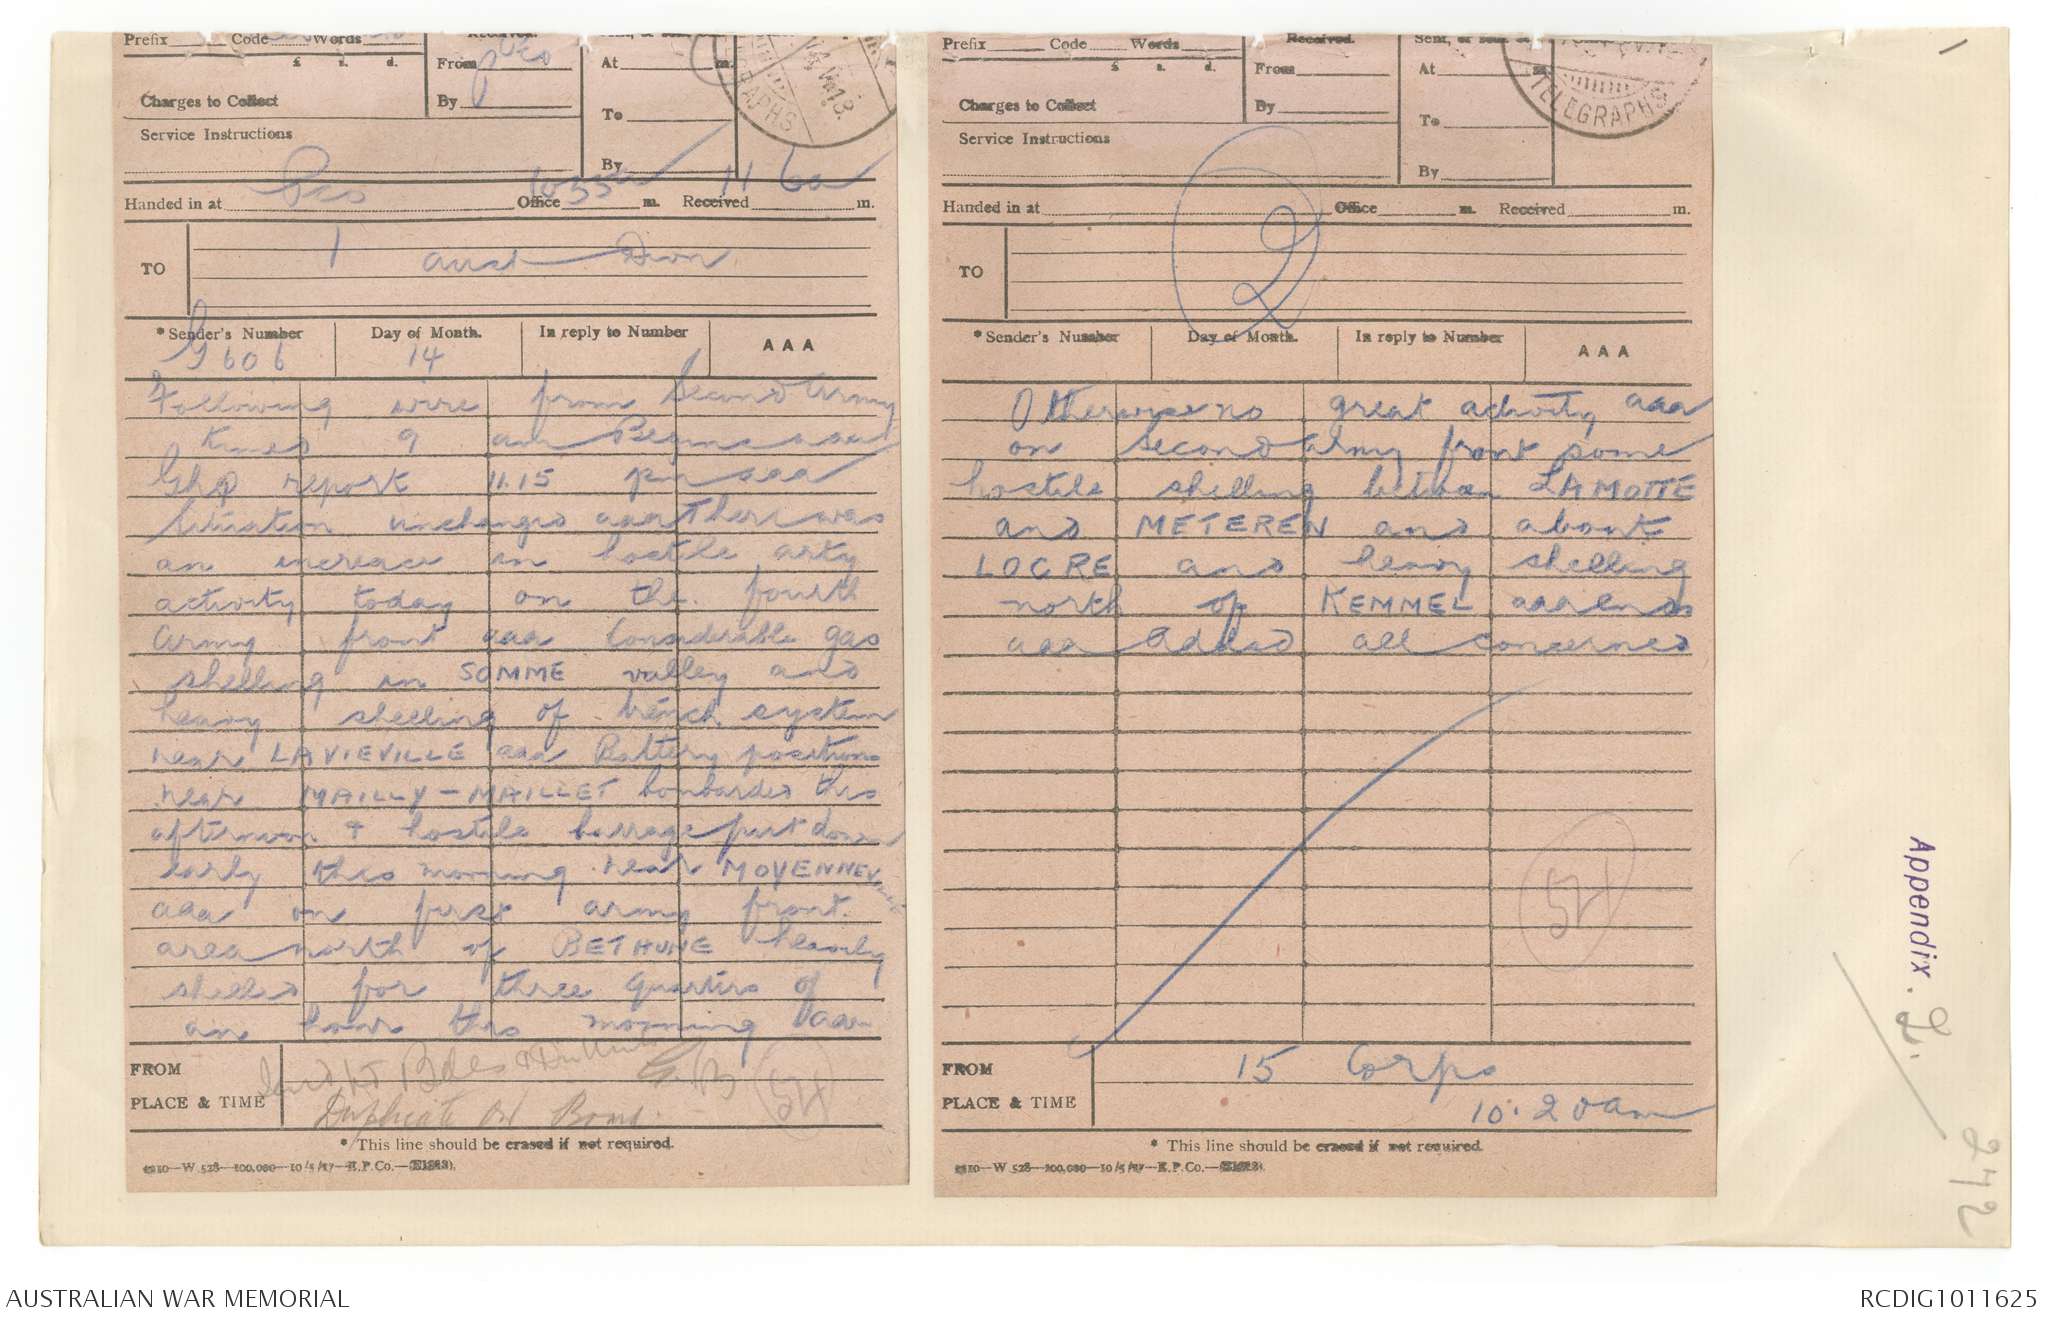 Prefix Code Words
£ s. d.
Charges to Collect
Service Instructions
Received.
From
By
Sent, or sent out
At m.
To
By
TELEGRAPHS
Handed in at Office 1035a m. Received 11 6a m.
TO 1 Aust Divn
*Sender's Number Day of Month. In reply to Number AAA
G606 14
Following wire from Second Army
times 9 am Begins aaa
Ghq report 11.15 pm aaa
Situation unchanged aaa There was
an increase in hostile arty
activity today on the fourth
army front aaa Considerable gas
shelling in SOMME valley and
heavy shelling of trench system
near LAVIEVILLE aaa Battery positions
near MAILLY-MAILLET bombarded this
afternoon & hostile barrage put down
early this morning near MOYENNEVILLE
aaa on first army front.
area north of BETHUNE heavily
shelled for three quarters of
an hour this morning aaa
FROM
PLACE & TIME Duplicate
54
* This line should be erased if not required.
Prefix Code Words
£ s. d.
Charges to Collect
Service Instructions
Received.
From
By
Sent, or sent out
At m.
To
By
TELEGRAPHS
Handed in at Office m. Received m.
2
TO
*Sender's Number Day of Month. In reply to Number AAA
Otherwise no great activity aaa
on second army front some
hostile shelling between LA MOTTE
and METEREN and about
LOCRE and heavy shelling
north of KEMMEL aaa ends
aaa Added all concerned
54
FROM 15 Corps
PLACE & TIME 10.20am
* This line should be erased if not required.
1
Appendix. 2.
242
AUSTRALIAN WAR MEMORIAL
RCDIG1011625